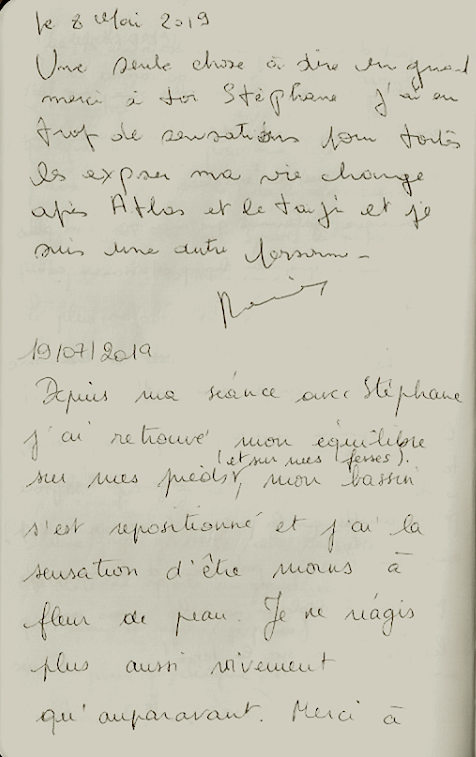 le 8 Mai 2019
Une seule chose à dire un grand
merci à toi Stéphane j'ai eu
trop de sensations pour toutes
les expser ma vie change
après Atlas et le taïji et je
suis une autre personne -
19/07/2019
Depuis ma séance avec Stéphane
j'ai retrouvé mon équilibre
(et sur mes fesses).
sur mes pieds, mon bassin
s'est repositionné et j'ai la
sensation d'être moins à
fleur de peau. Je ne réagis
plus aussi vivement
qu'auparavant. Merci à